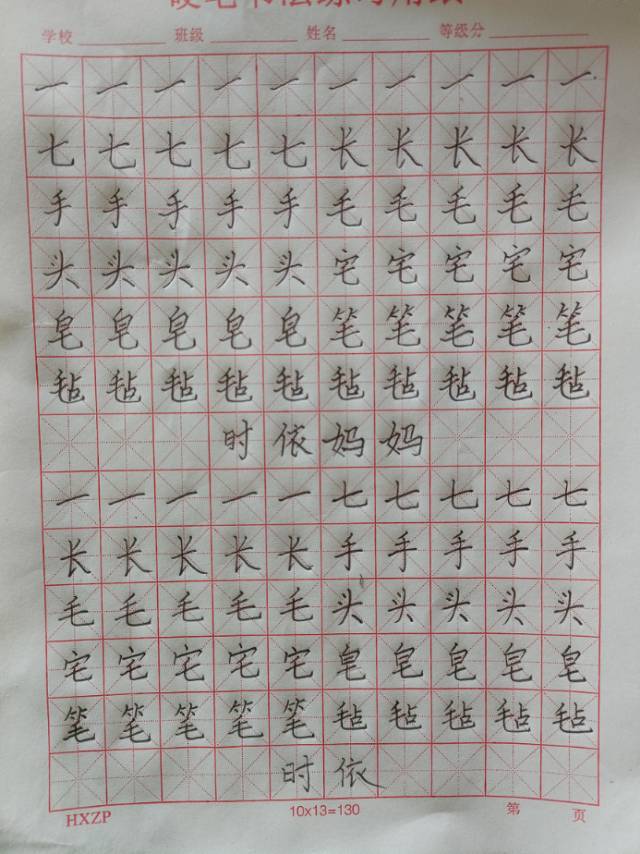 硬笔书法练习用纸
学校 班级 姓名 等级分
一 一 一 一 一 一 一 一 一 一
七 七 七 七 七 长 长 长 长 长
手 手 手 手 手 毛 毛 毛 毛 毛
头 头 头 头 头 宅 宅 宅 宅 宅
皂 皂 皂 皂 皂 笔 笔 笔 笔 笔
毡 毡 毡 毡 毡 毡 毡 毡 毡 毡
时 依 妈 妈
一 一 一 一 一 七 七 七 七 七
长 长 长 长 长 手 手 手 手 手
毛 毛 毛 毛 毛 头 头 头 头 头
宅 宅 宅 宅 宅 皂 皂 皂 皂 皂
笔 笔 笔 笔 笔 毡 毡 毡 毡 毡
时 依
HXZP 10x13=130 第 页